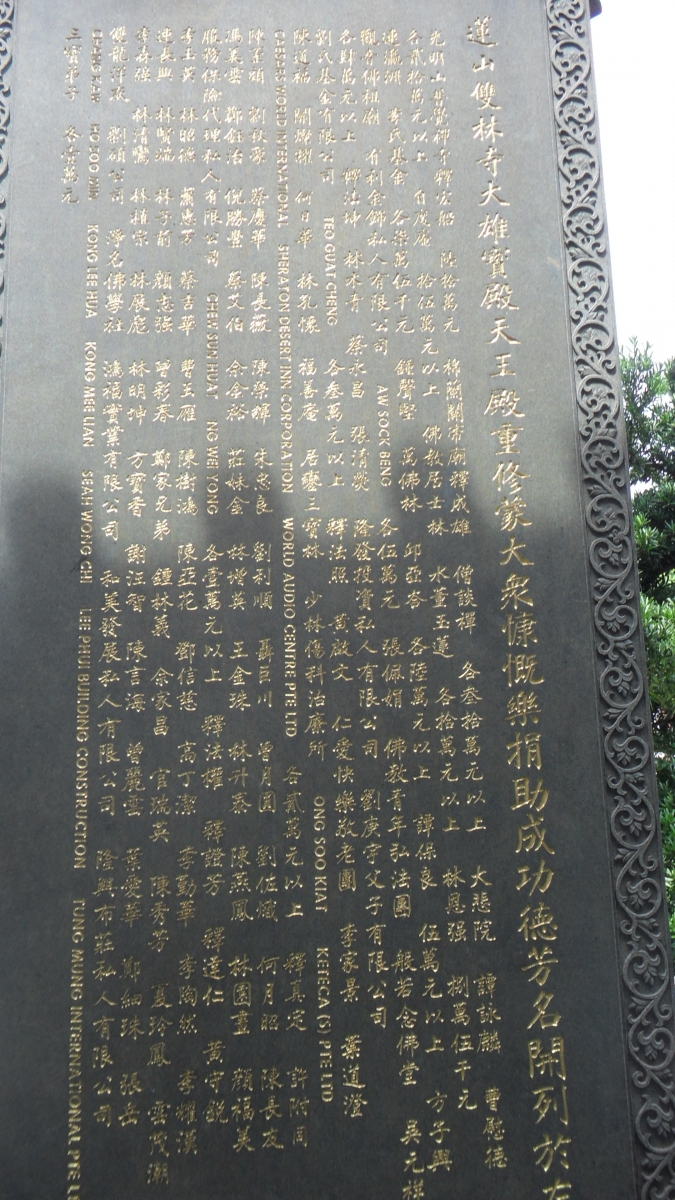 蓮山雙林寺大雄寶殿天王殿重修蒙大衆慷慨樂捐助成功德芳名開列於左
光明山普覺禪寺釋宏船 陸拾萬元 棉蘭關帝廟釋成雄 僧談禪 各叁拾萬元以上 大悲院 譚詠麟 曹慰德
各貳拾萬元以上 自度庵 拾伍萬元以上 佛教居士林 水董玉蓮 各拾萬元以上 林恩强 捌萬伍千元
連瀛洲 李氏基金 各柒萬伍千元 鍾聲堅 萬佛林 邱亞峇 各陸萬元以上 譚保良 伍萬元以上 方子興
觀音佛祖廟 有利金飾私人有限公司 AW SOCK BENG 各伍萬元 張佩娟 佛教青年弘法團 般若念佛堂 吴元祥
各肆萬元以上 林木青 蔡水昌 張清 隆發投資私人有限公司 劉庚宇父子有限公司
劉氏基金有限公司 TEO GUAT CHENG 各叁萬元以上 釋法照 黄啟文 仁愛快樂敬老團 李家景 葉道澄
陳道福 何日華 林禮懷 福善庵 居鑾三寶林 少林傷科治療所 ONG SOO KIAT KETCA (S) PTE LTD
CAESARS WORLD INTERNATIONAL SHERATON DESERT INN CORPORATION WORLD AUDIO CENTRE PTE LTD 各貳萬元以上 釋真定 許附同
陳星碩 劉秋霖 蔡慶華 陳長薇 陳榮輝 朱忠良 劉利順 聶目川 曾月圓 劉佐熾 何月昭 陳長友
馮美雲 鄭鈺治 倪勝豐 蔡艾伯 余含裕 莊妹金 林增英 王金珠 林升泰 陳燕鳳 林園畫 顏福美
服務保險代理私人有限公司 CHEW SUN HUAT NG WEI YONG 各壹萬元以上 釋法權 釋證芳 釋達仁 黄守鋭
李玉英 林昭德 蕭惠芳 蔡吉華 曹玉雁 陳樹鴻 陳亞花 鄧信慈 高丁潔 李勤華 李陶然 李耀漢
連長興 林賢滿 林子前 顏志强 曾彩春 鄭家兄弟 鍾林義 余家昌 官瑞英 陳秀芳 夏玲鳳 雲茂潮
李森强 林清 林植宗 林展彪 林明坤 方寶香 謝汪智 陳言海 曾麗雲 葉愛華 鄭細珠 張岳
雙龍洋灰 劉碩公司 淨名佛學社 鴻福實業有限公司 和美發展私人有限公司 隆興布莊私人有限公司
HO FOO HIN KONG LEE HUA KONG MEE LIAN SEAH WONG CHI LEE PHUI BUILDING CONSTRUCTION TUNG MUNG INTERNATIONAL PTE
三寶弟子 各壹萬元